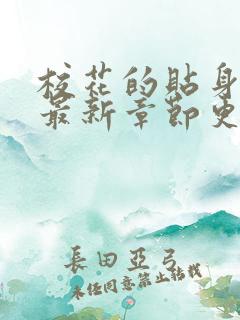 校花的貼身
最新章節更
長田亞弓
未经同意禁止转载